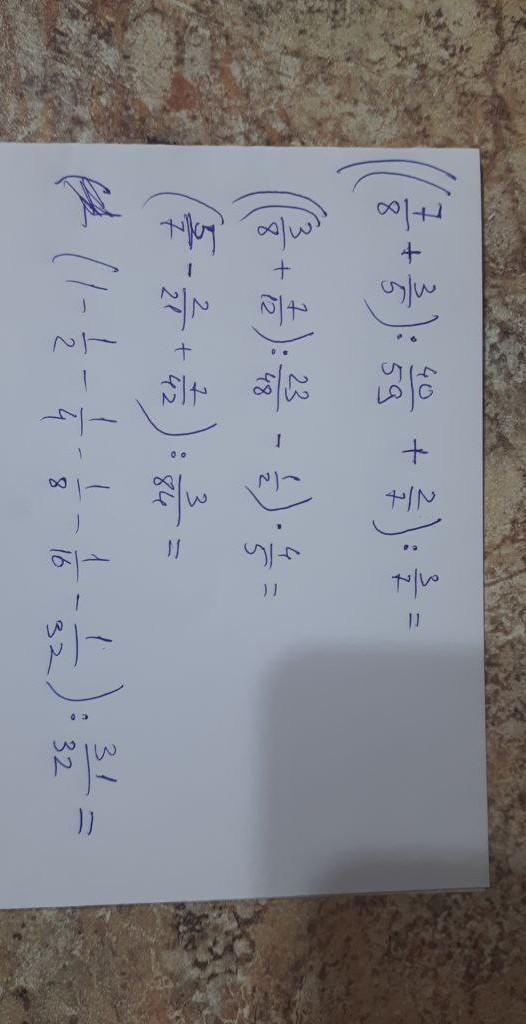 ((7/8 + 3/5) : 40/59 + 2/7) : 3/7 =
((3/8 + 7/12) : 23/48 - 1/2) · 4/5 =
(5/7 - 2/21 + 7/42) : 3/84 =
(1 - 1/2 - 1/4 - 1/8 - 1/16 - 1/32) : 31/32 =